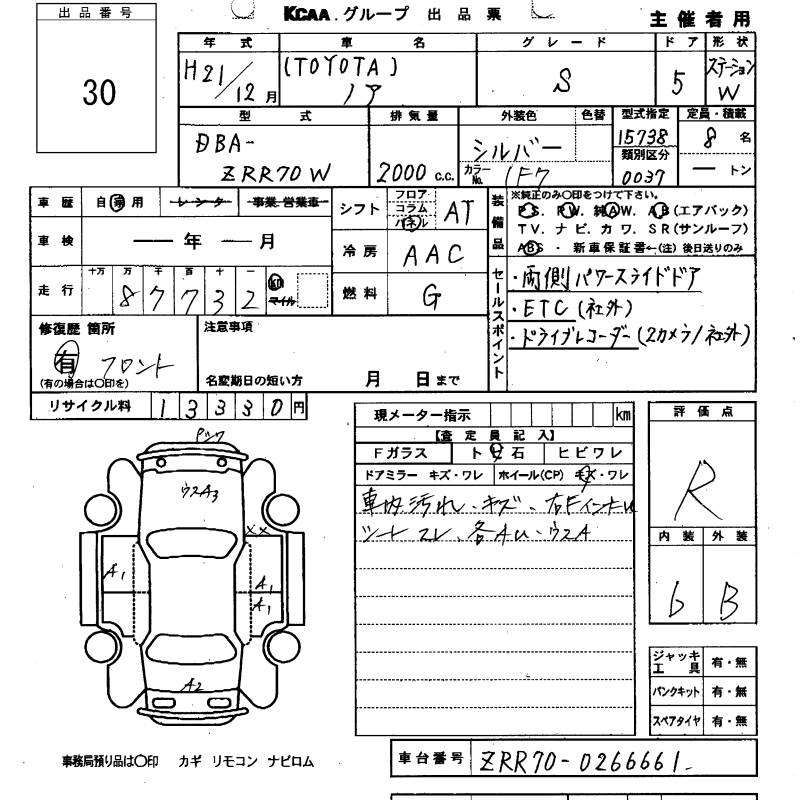 出品番号
30
KCAA グループ 出品票
主催者用
年式 車名 グレード ドア 形状
H21/12月 (TOYOTA) ノア S 5 ステーションW
型式 排気量 外装色 色替 型式指定 定員・積載
DBA-ZRR70W 2000c.c. シルバー カラーNo. 1F7 15738 8名
類別区分 0037 ートン
車歴 自家用 レンタ 事業・営業車
シフト フロア コラム パネル AT
装備品 ※純正のみ〇印をつけて下さい。
P.S. P.W. 純A.W. A.B(エアバック)
T.V. ナビ. カワ. S.R(サンルーフ)
ABS・新車保証書←(注)後日送りのみ
車検 ー年ー月
冷房 AAC
走行 十万 万 千 百 十 一
87732 km マイル
燃料 G
セールスポイント
・両側パワースライドドア
・ETC(社外)
・ドライブレコーダー(2カメラ/社外)
修復歴 箇所
有 フロント
(有の場合は〇印を)
注意事項
名変期日の短い方 月 日まで
リサイクル料 13330円
現メーター指示 km
【査定員記入】
Fガラス トビ石 ヒビワレ
ドアミラー キズ・ワレ ホイール(CP) キズ・ワレ
車内汚れ、キズ、右FインナーU
シートスレ、各AU・ウスA
評価点
R
内装 外装
6 B
ウスA3
××
A1
A1
A1
A2
ジャッキ工具 有・無
パンクキット 有・無
スペアタイヤ 有・無
事務局預り品は〇印 カギ リモコン ナビロム
車台番号 ZRR70-0266661